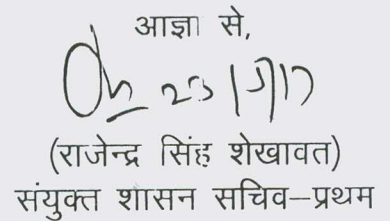 आज्ञा से,
23/5/17
(राजेन्द्र सिंह शेखावत)
संयुक्त शासन सचिव–प्रथम